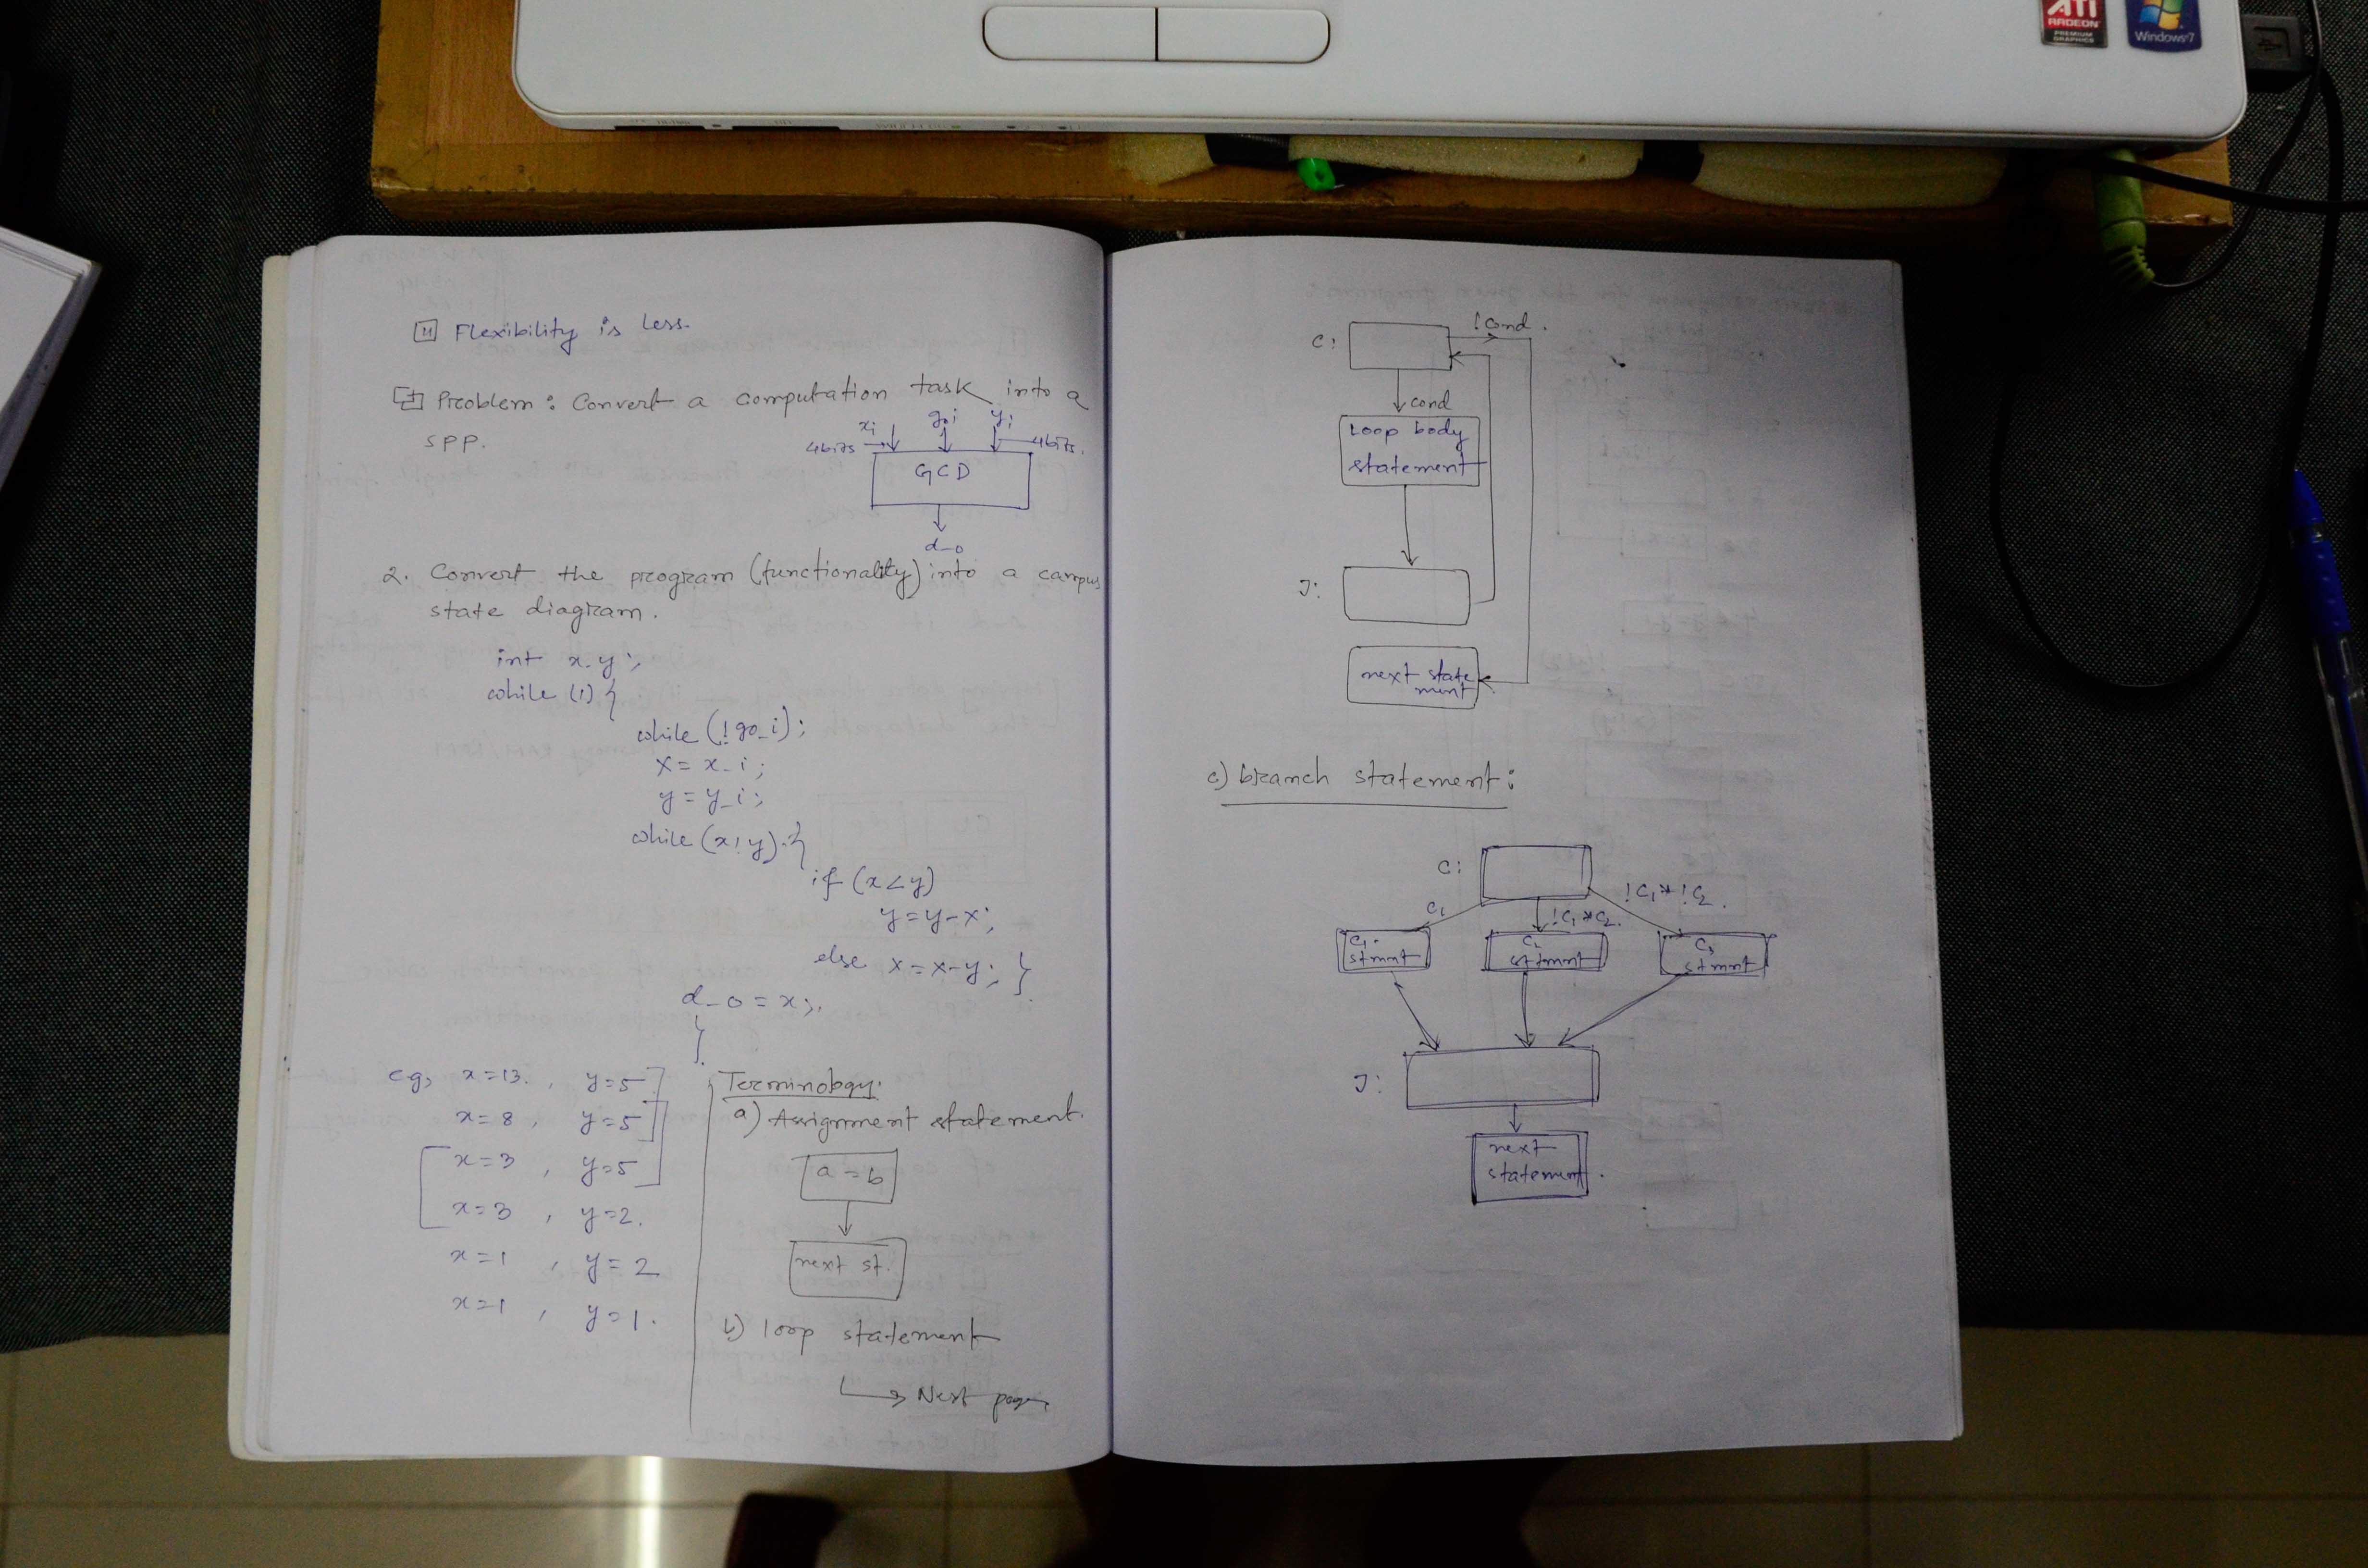 ATI
RADEON
PREMIUM
GRAPHICS
Windows 7
Flexibility is less.
Problem: Convert a computation task into a
spp.
xi
go i
yi
4bits
4bits.
GCD
d-o
2. Convert the program (functionality) into a
state diagram.
int x, y;
while (1) {
while (!go_i);
x = x_i;
y = y_i;
while (x!y) {
if (x<y)
y = y-x;
else x = x-y; }
d_o = x;
}
eg, x=13, y=5
x=8, y=5
x=3, y=5
x=3, y=2.
x=1, y=2
x=1, y=1.
Terminology:
a) Assignment statement.
a = b
next st.
b) loop statement
Next page
!cond.
C:
cond
Loop body
statement
J:
next state
ment
c) branch statement:
C:
C1
!C1*C2.
!C1*!C2.
C1
stmnt
C2
stmnt
C3
stmnt
J:
next
statement.